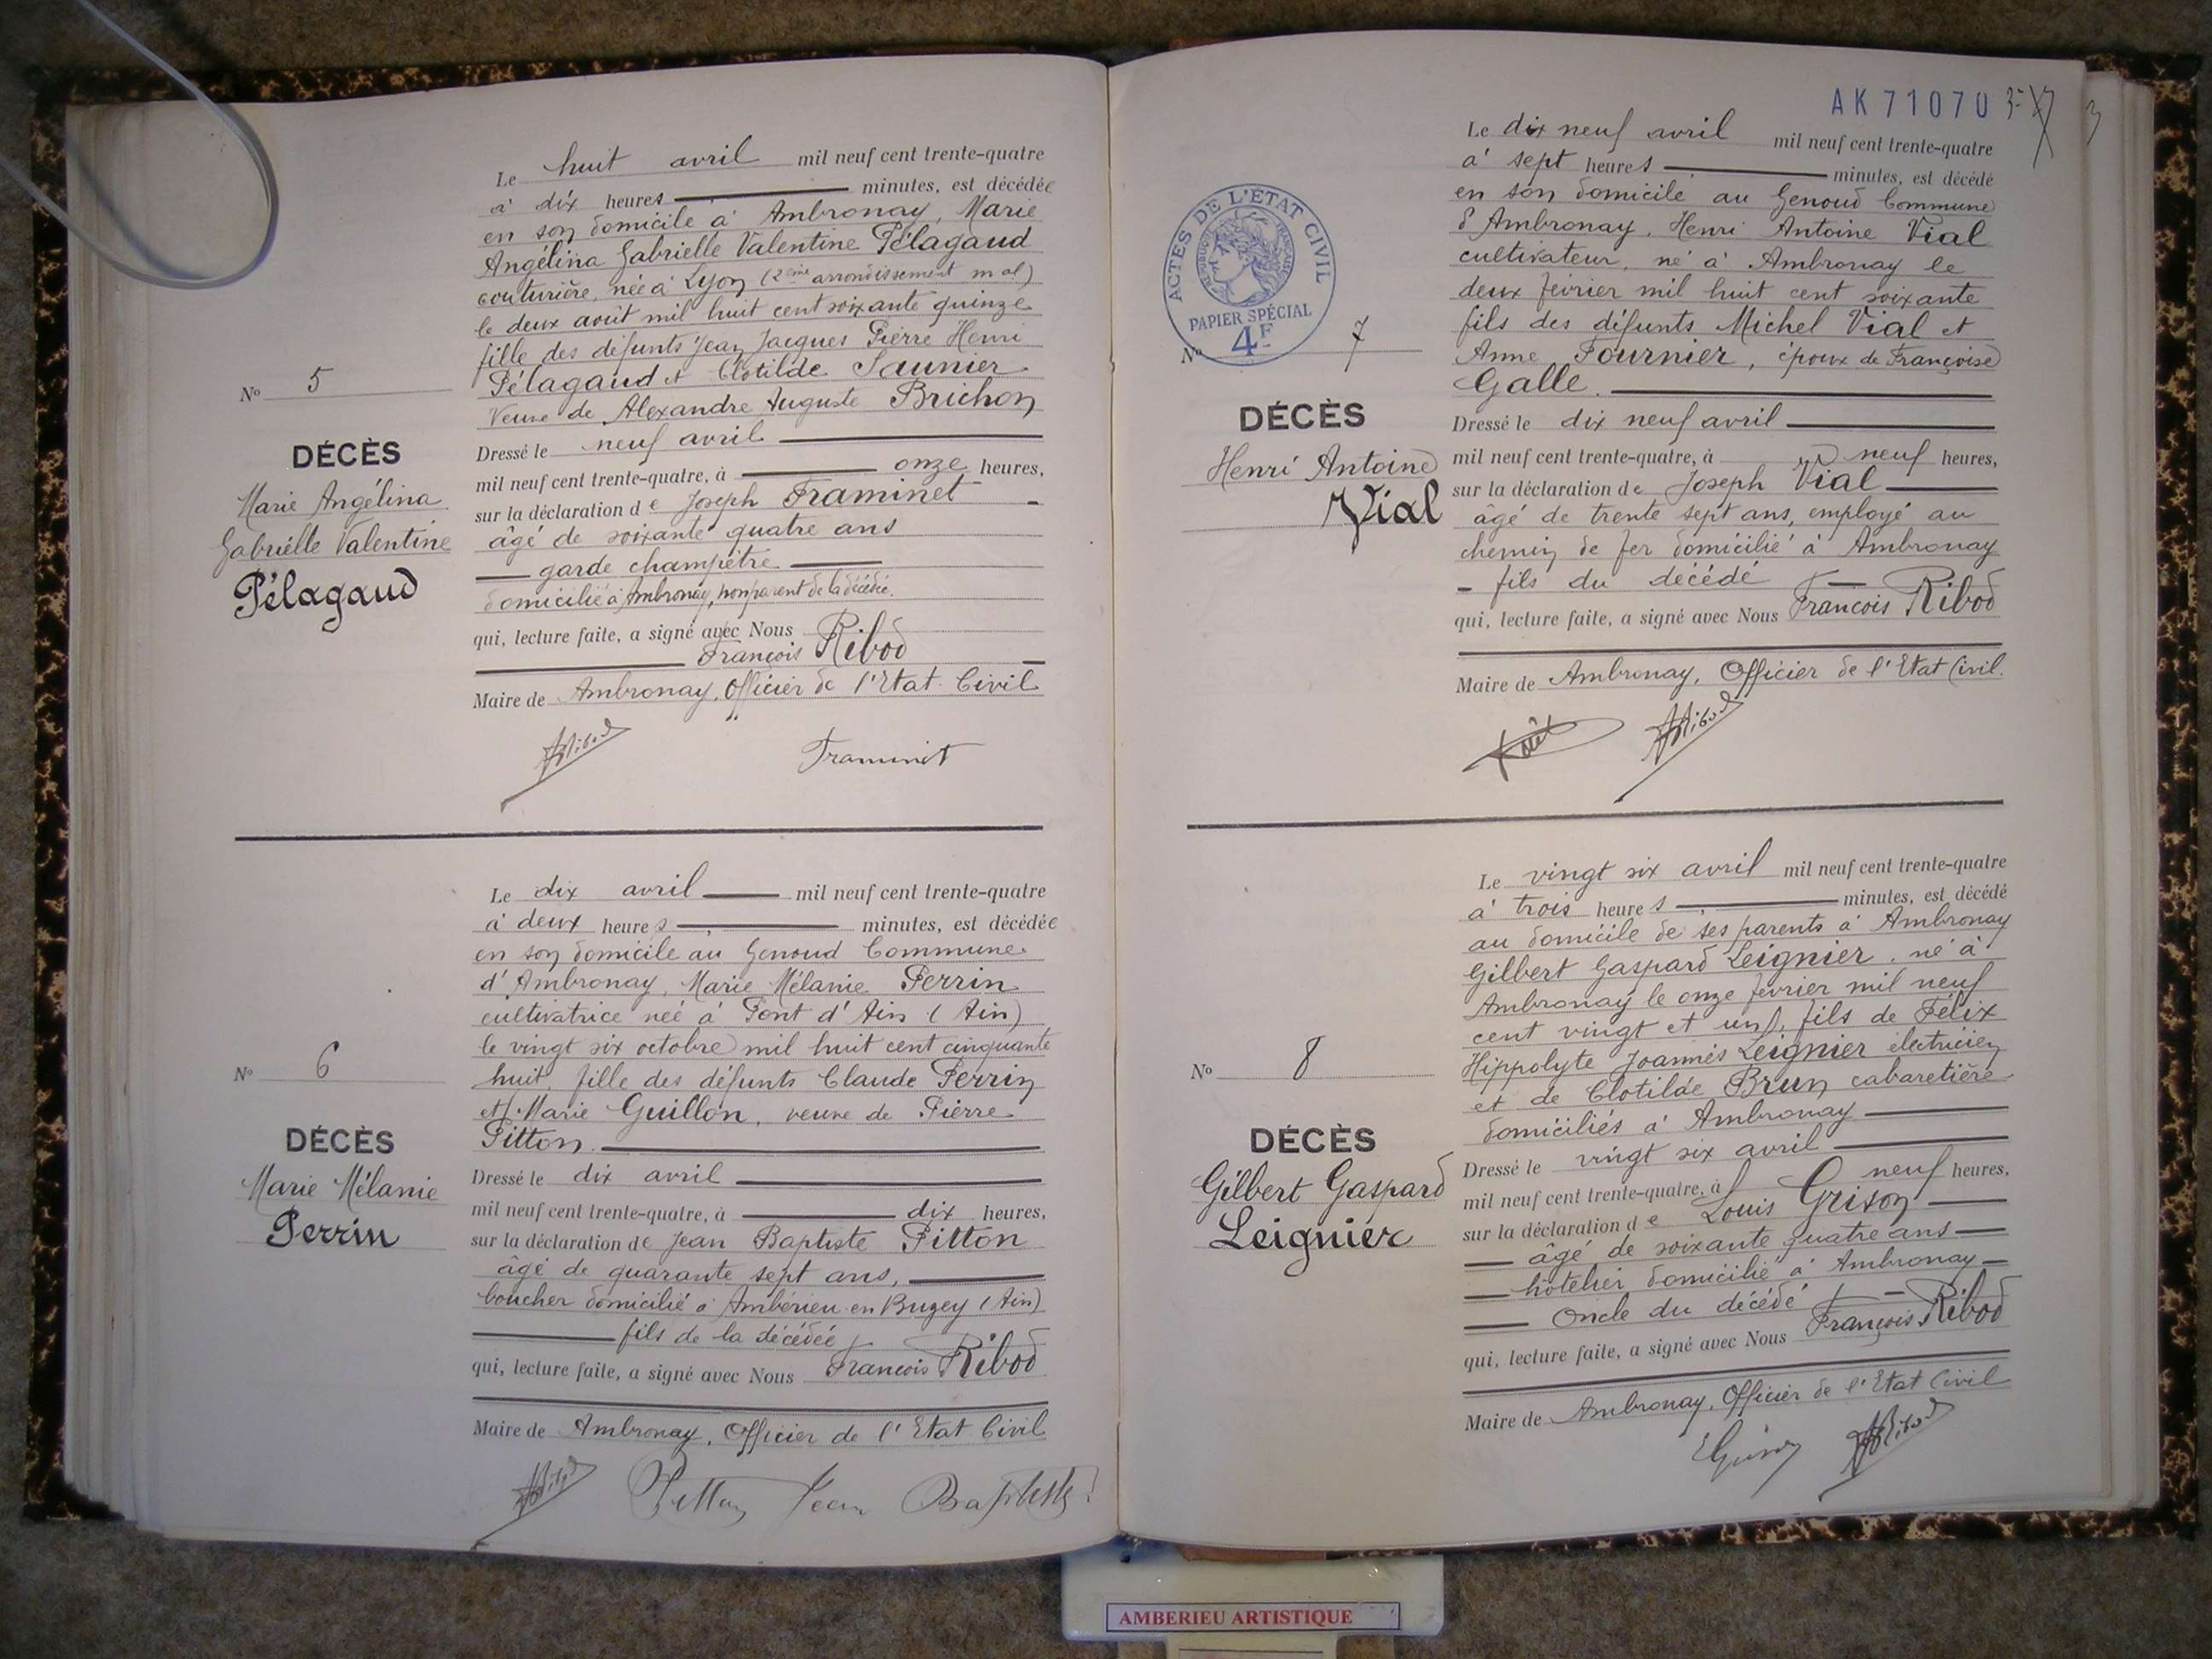 Le huit avril mil neuf cent trente-quatre
à dix heures minutes, est décédée
en son domicile à Ambronay, Marie
Angélina Gabrielle Valentine Pélagaud
couturière, née à Lyon (2ème arrondissement mal)
le deux août mil huit cent soixante quinze
fille des défunts Jean Jacques Pierre Henri
Pélagaud et Clotilde Saunier
Veuve de Alexandre Auguste Brichon
Nº 5
DÉCÈS
Marie Angélina
Gabrielle Valentine
Pélagaud
Dressé le neuf avril
mil neuf cent trente-quatre, à onze heures,
sur la déclaration de Joseph Framinet
âgé de soixante quatre ans
garde champêtre
domicilié à Ambronay, non parent de la décédée.
qui, lecture faite, a signé avec Nous
François Ribod
Maire de Ambronay, Officier de l'Etat Civil
Ribod Framinet
Le dix avril mil neuf cent trente-quatre
à deux heures minutes, est décédée
en son domicile au Genoud Commune
d'Ambronay, Marie Mélanie Perrin
cultivatrice née à Pont d'Ain (Ain)
le vingt six octobre mil huit cent cinquante
huit, fille des défunts Claude Perrin
et Marie Guillon, veuve de Pierre
Pitton.
Nº 6
DÉCÈS
Marie Mélanie
Perrin
Dressé le dix avril
mil neuf cent trente-quatre, à dix heures,
sur la déclaration de Jean Baptiste Pitton
âgé de quarante sept ans,
boucher domicilié à Ambérieu en Bugey (Ain)
fils de la décédée
qui, lecture faite, a signé avec Nous François Ribod
Maire de Ambronay, Officier de l'Etat Civil
Ribod Pitton Jean Baptiste
AK 71070
3
Le dix neuf avril mil neuf cent trente-quatre
à sept heures minutes, est décédé
en son domicile au Genoud Commune
d'Ambronay, Henri Antoine Vial
cultivateur, né à Ambronay le
deux février mil huit cent soixante
fils des défunts Michel Vial et
Anne Fournier, époux de Françoise
Galle.
ACTES DE L'ÉTAT CIVIL
RÉPUBLIQUE FRANÇAISE
PAPIER SPÉCIAL
4F
Nº 7
DÉCÈS
Henri Antoine
Vial
Dressé le dix neuf avril
mil neuf cent trente-quatre, à neuf heures,
sur la déclaration de Joseph Vial
âgé de trente sept ans, employé au
chemin de fer domicilié à Ambronay
fils du décédé
qui, lecture faite, a signé avec Nous François Ribod
Maire de Ambronay, Officier de l'Etat Civil.
Ribod
Le vingt six avril mil neuf cent trente-quatre
à trois heures minutes, est décédé
au domicile de ses parents à Ambronay
Gilbert Gaspard Leignier, né à
Ambronay le onze février mil neuf
cent vingt et un, fils de Félix
Hippolyte Joannès Leignier électricien
et de Clotilde Brun cabaretière
domiciliés à Ambronay
Nº 8
DÉCÈS
Gilbert Gaspard
Leignier
Dressé le vingt six avril
mil neuf cent trente-quatre, à neuf heures,
sur la déclaration de Louis Grison
âgé de soixante quatre ans
hôtelier domicilié à Ambronay
Oncle du décédé
qui, lecture faite, a signé avec Nous François Ribod
Maire de Ambronay, Officier de l'Etat Civil
Ribod
AMBERIEU ARTISTIQUE